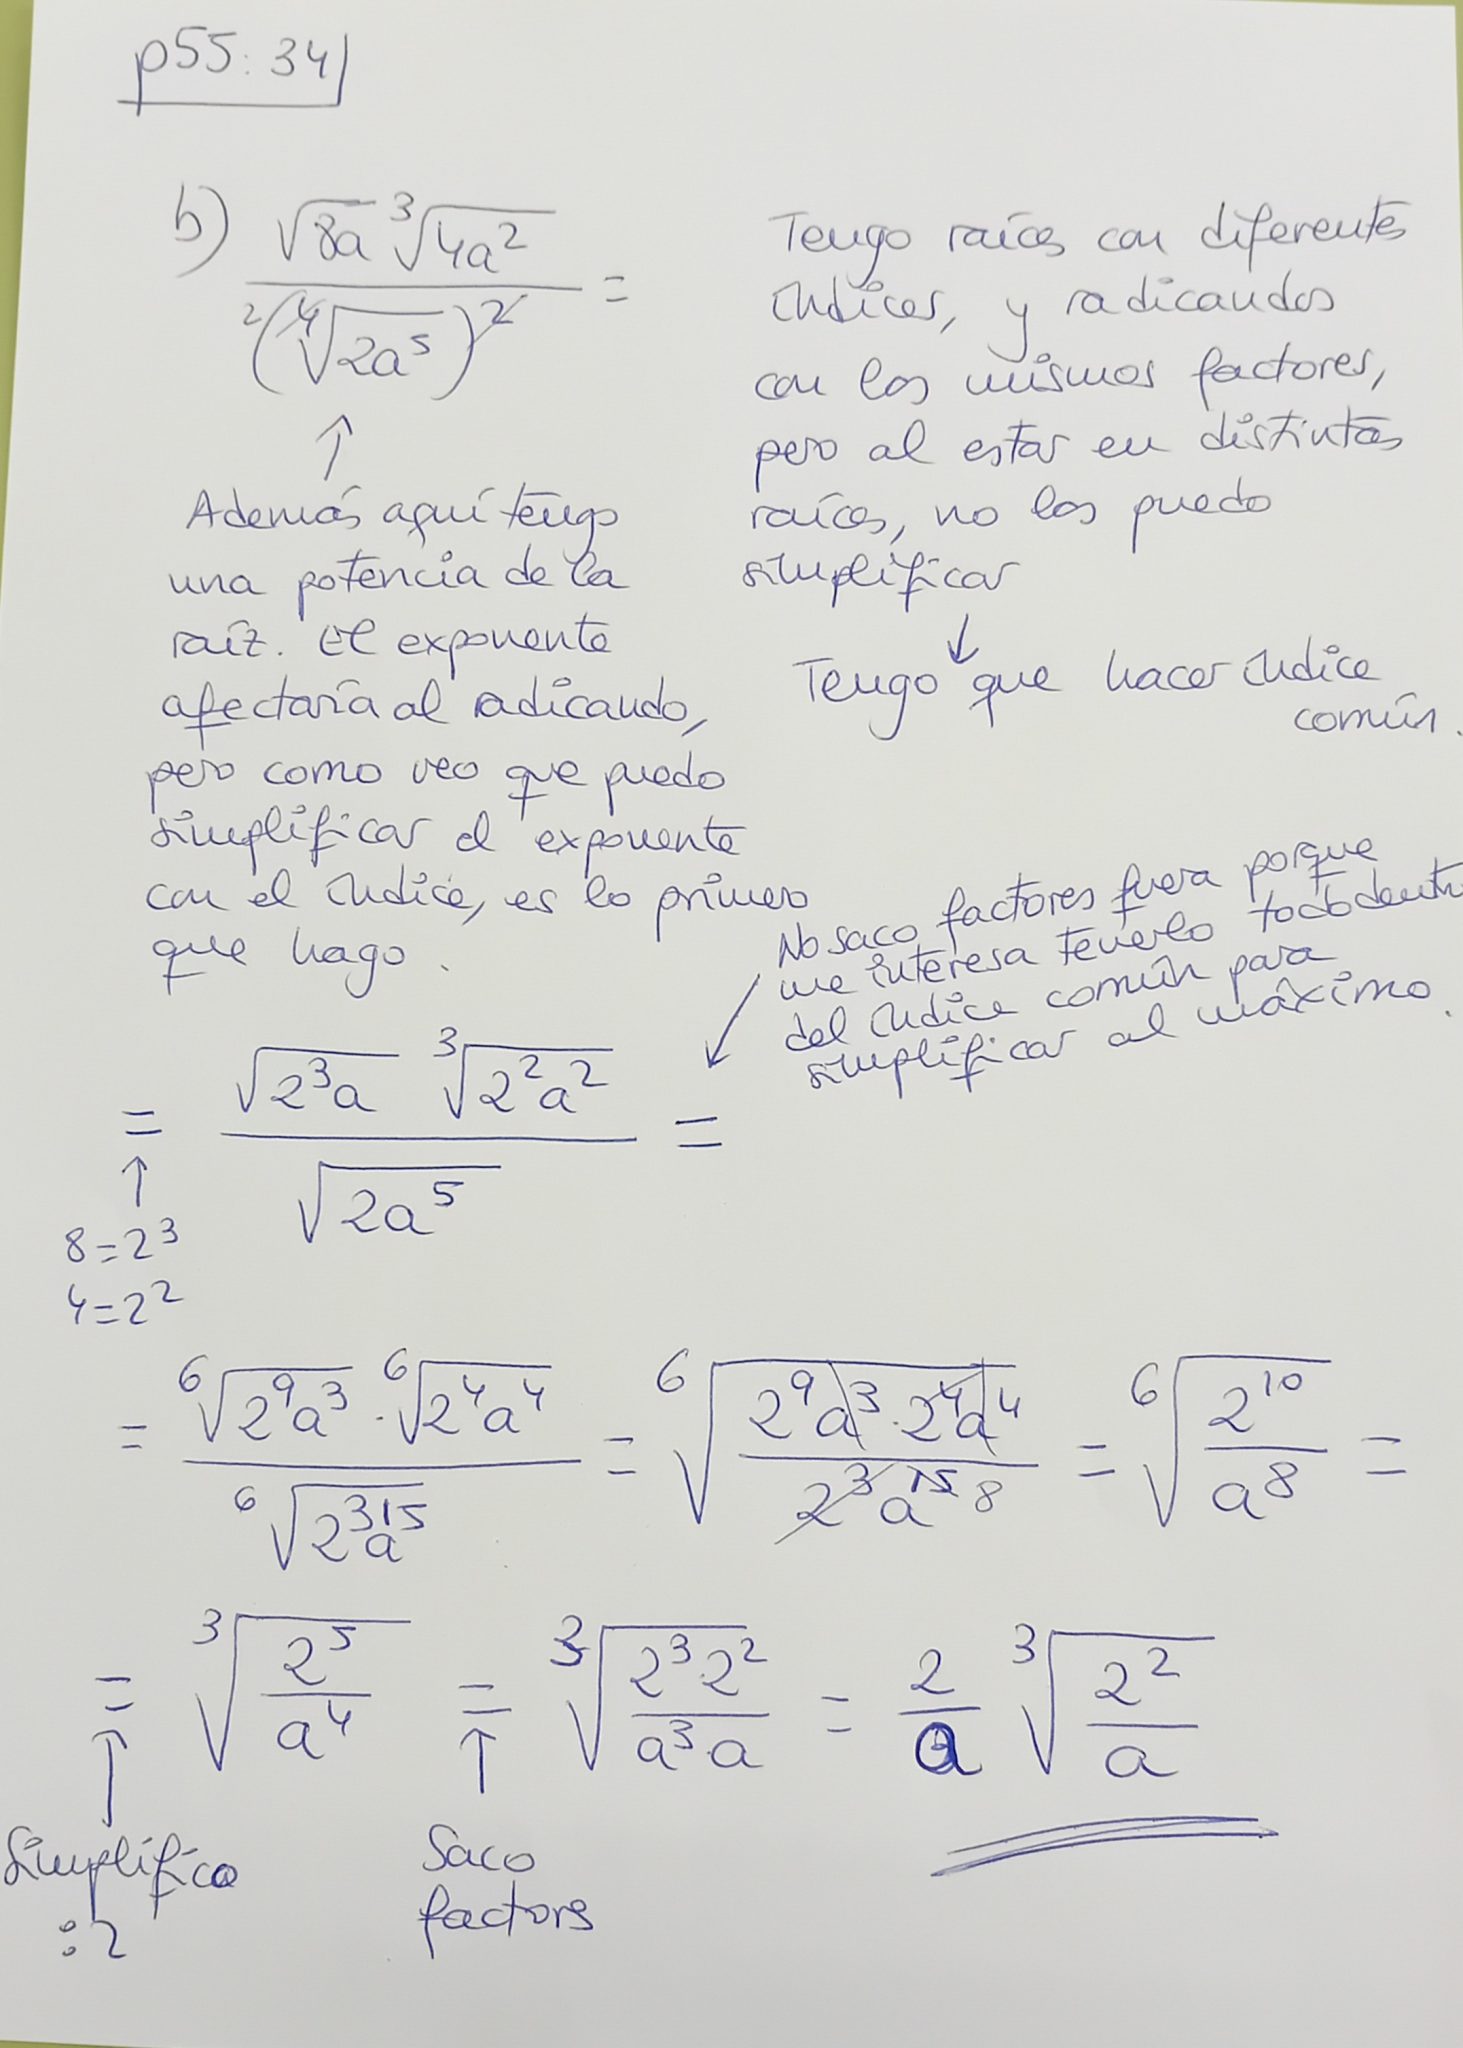 p55: 34
b) √8a ∛4a² / (⁴√2a⁵)² =
2
Tengo raíces con diferentes
índices, y radicandos
con los mismos factores,
pero al estar en distintas
raíces, no los puedo
simplificar
↓
Tengo que hacer índice
común.
↑
Además aquí tengo
una potencia de la
raíz. El exponente
afectaría al radicando,
pero como veo que puedo
simplificar el exponente
con el índice, es lo primero
que hago.
No saco factores fuera porque
me interesa tenerlo todo dentro
del índice común para
simplificar al máximo.
= √2³a ∛2²a² / √2a⁵ =
↑
8=2³
4=2²
= ⁶√2⁹a³ · ⁶√2⁴a⁴ / ⁶√2³a¹⁵ = ⁶√(2⁹a³·2⁴a⁴ / 2³a¹⁵ 8) = ⁶√(2¹⁰ / a⁸) =
= ∛(2⁵ / a⁴) = ∛(2³·2² / a³·a) = 2/a ∛(2² / a)
↑ ↑
Simplifico
:2
Saco
factors